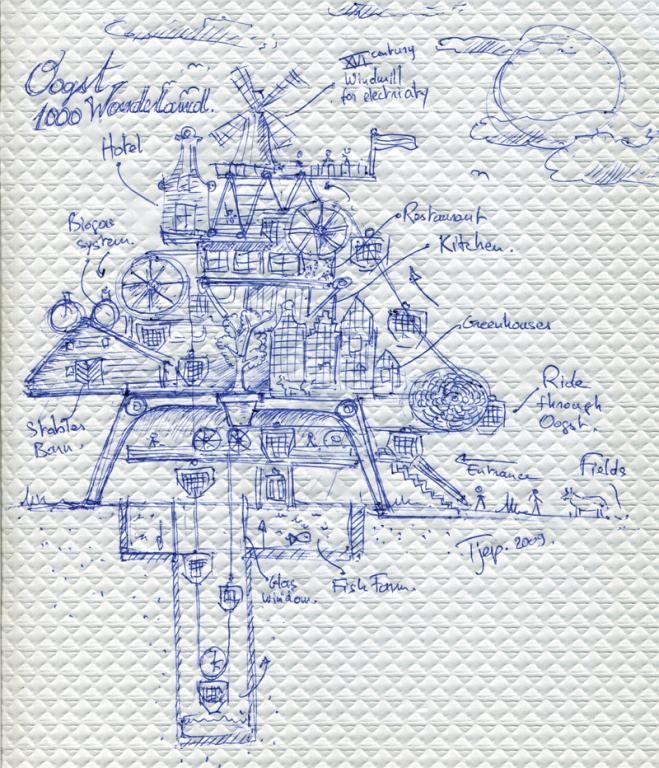 Oogst
1000 Wonderland.
XVI century
Windmill
for electricity
Hotel
Biogas
system.
Restaurant
Kitchen.
Greenhouses
Ride
through
Oogst.
Stables
Barn.
Entrance
Fields
Tjep. 2009.
Glas
window.
Fish Farm.